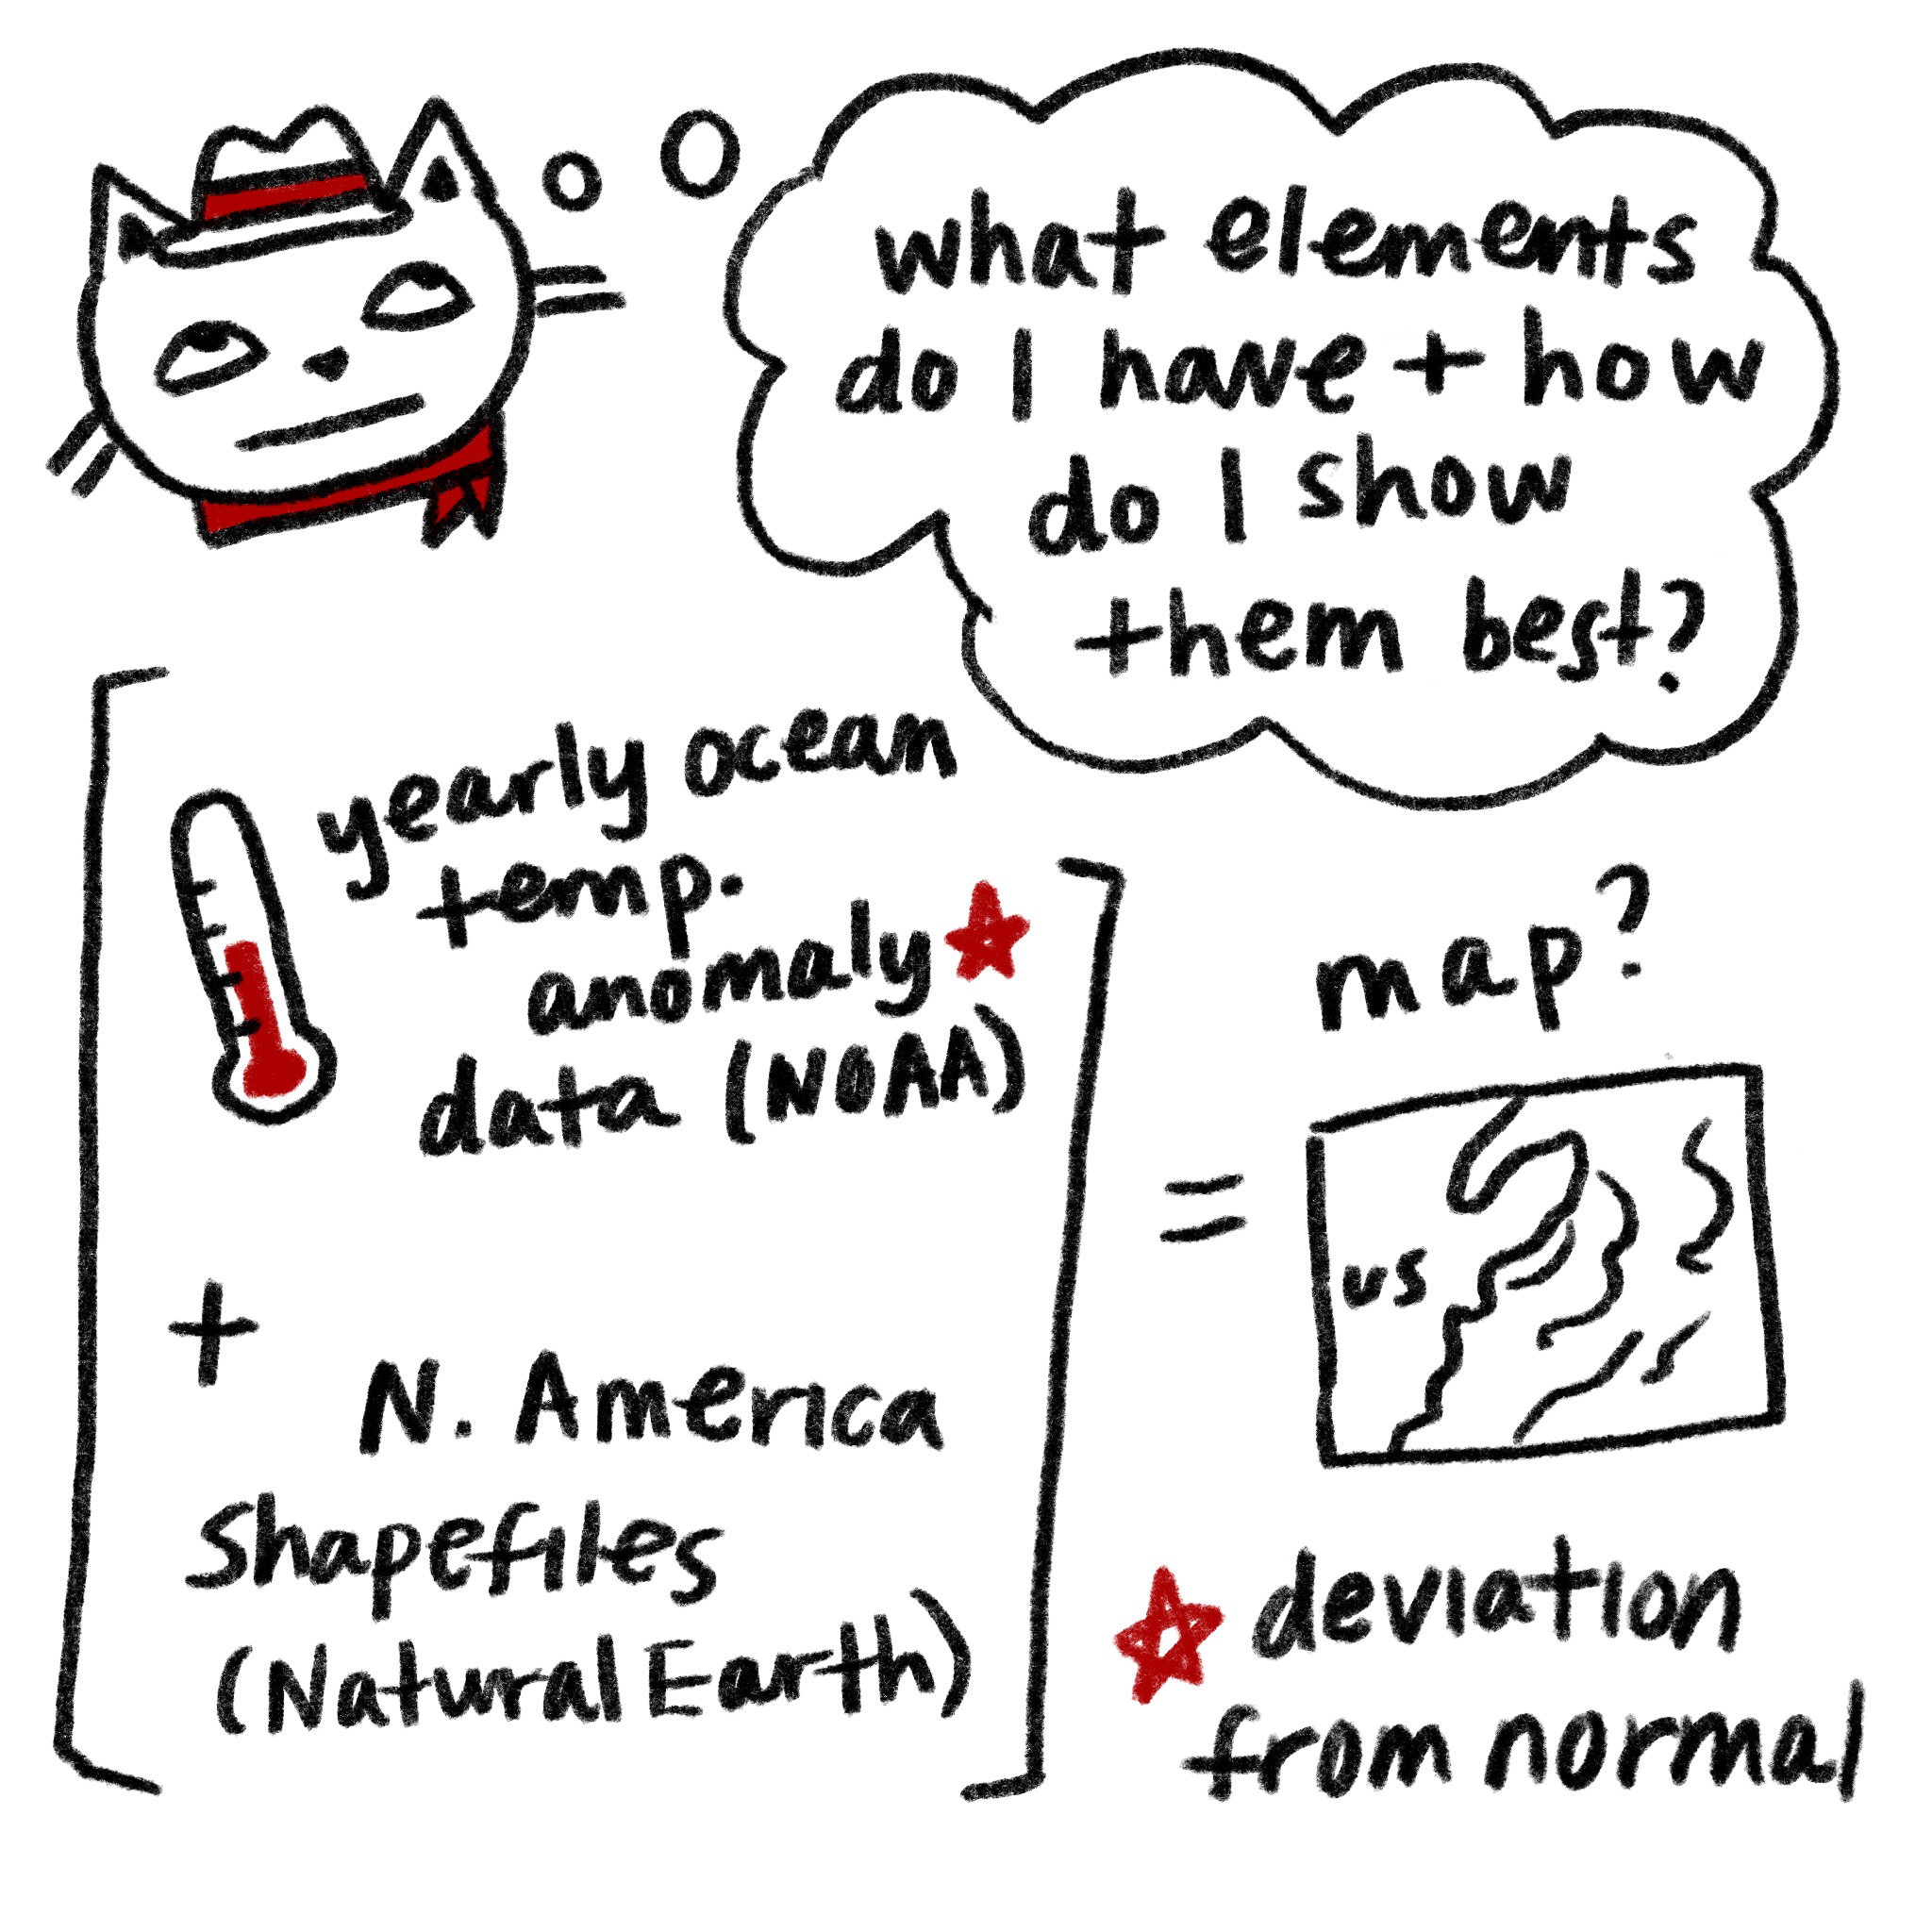 what elements
do I have + how
do I show
them best?
yearly ocean
temp.
anomaly
data (NOAA)
+
N. America
Shapefiles
(Natural Earth)
=
map?
us
deviation
from normal